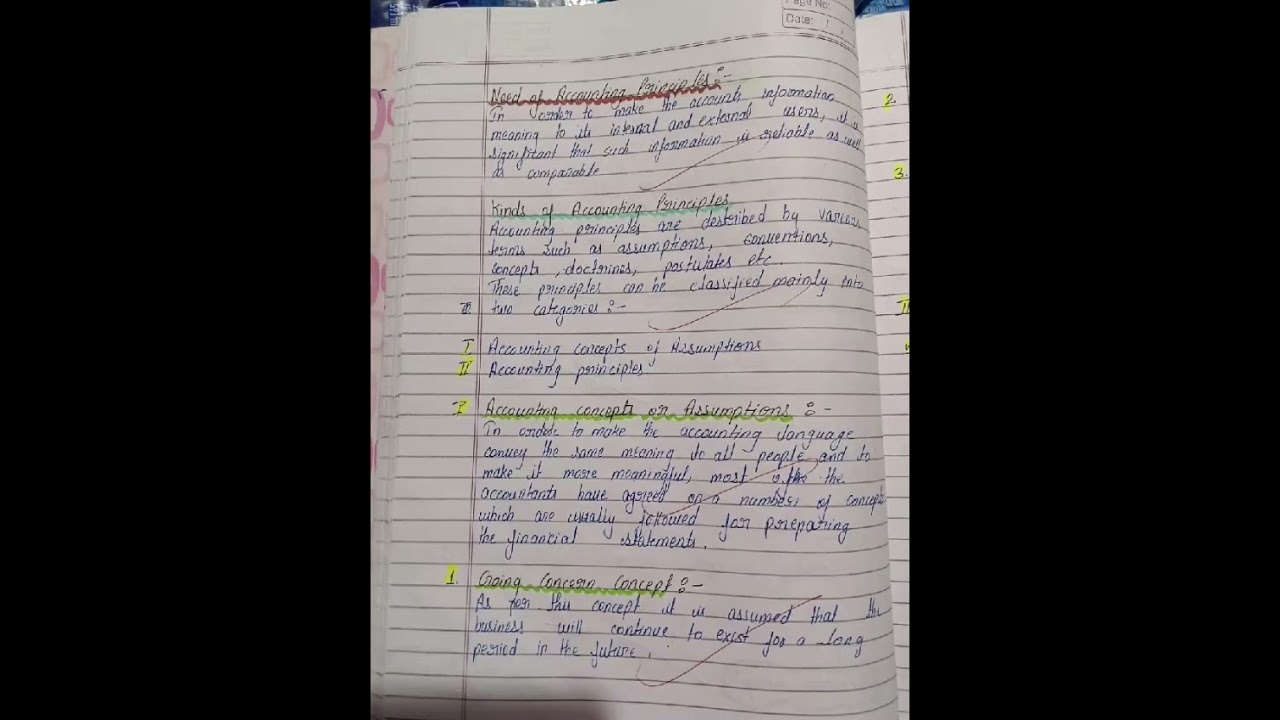 Page No:
Date: / /
Need of Accounting Principles :-
In order to make the accounts information
meaning to its internal and external users, it is
significant that such information is reliable as well
as comparable
Kinds of Accounting Principles
Accounting principles are described by various
terms such as assumptions, conventions,
concepts, doctrines, postulates etc.
These principles can be classified mainly into
two categories :-
I Accounting concepts of Assumptions
II Accounting principles.
I Accounting concepts or Assumptions :-
In order to make the accounting language
convey the same meaning to all people and to
make it more meaningful, most of the
accountants have agreed on a number of concepts
which are usually followed for preparing
the financial statements.
1. Going Concern Concept :-
As per this concept it is assumed that the
business will continue to exist for a long
period in the future.
2.
3.